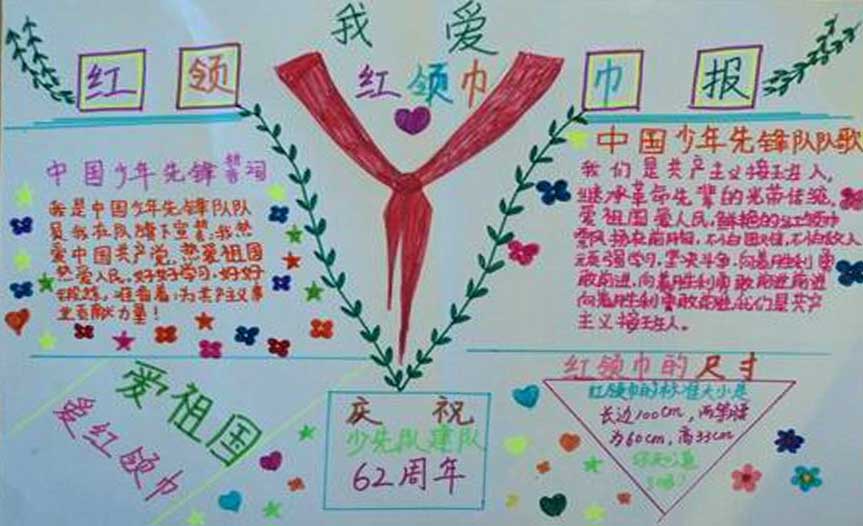 我 爱
红领巾
红 领 巾 报
中国少年先锋誓词
我是中国少年先锋队队
员我在队旗下宣誓:我热
爱中国共产党,热爱祖国
热爱人民,好好学习,好好
锻炼,准备着:为共产主义事
业贡献力量!
中国少年先锋队队歌
我们是共产主义接班人,
继承革命先辈的光荣传统,
爱祖国爱人民,鲜艳的红领巾
飘扬在前胸,不怕困难,不怕敌人
顽强学习,坚决斗争,向着胜利勇
敢前进,向着胜利勇敢前进前进
向着胜利勇敢前进,我们是共产
主义接班人。
爱祖国
爱红领巾
庆 祝
少先队建队
62周年
红领巾的尺寸
红领巾的标准大小是
长边100cm,两等腰
为60cm,高33cm